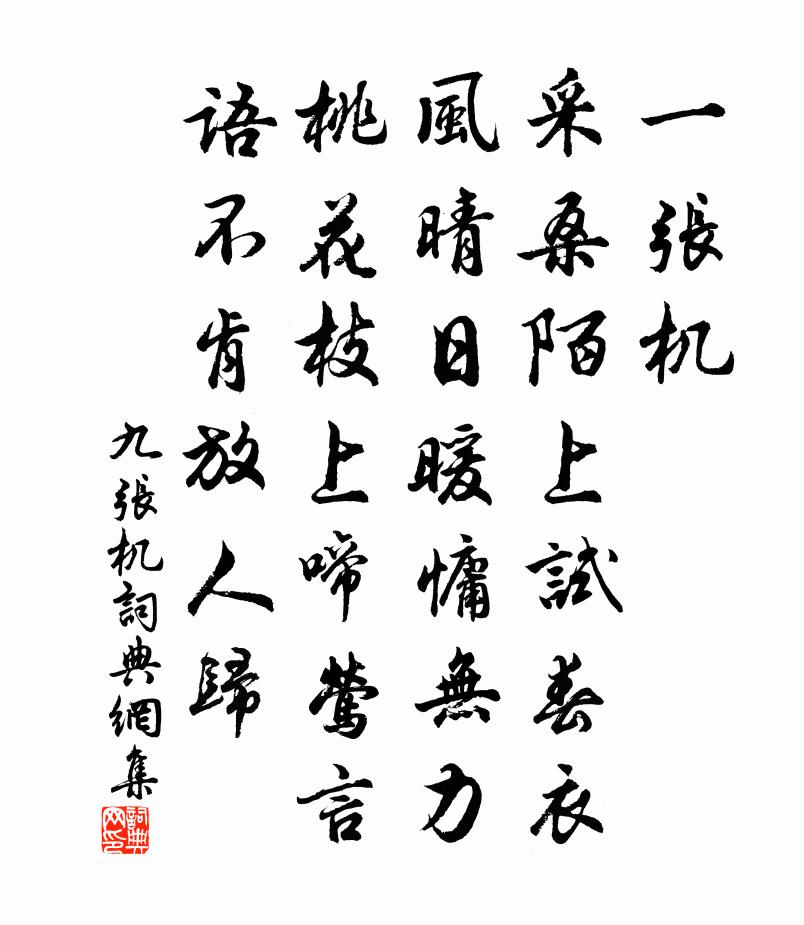 一張机
采桑陌上試春衣
風晴日暖慵無力
桃花枝上啼鶯言
語不肯放人歸
九張机詞典網集
詞典网印